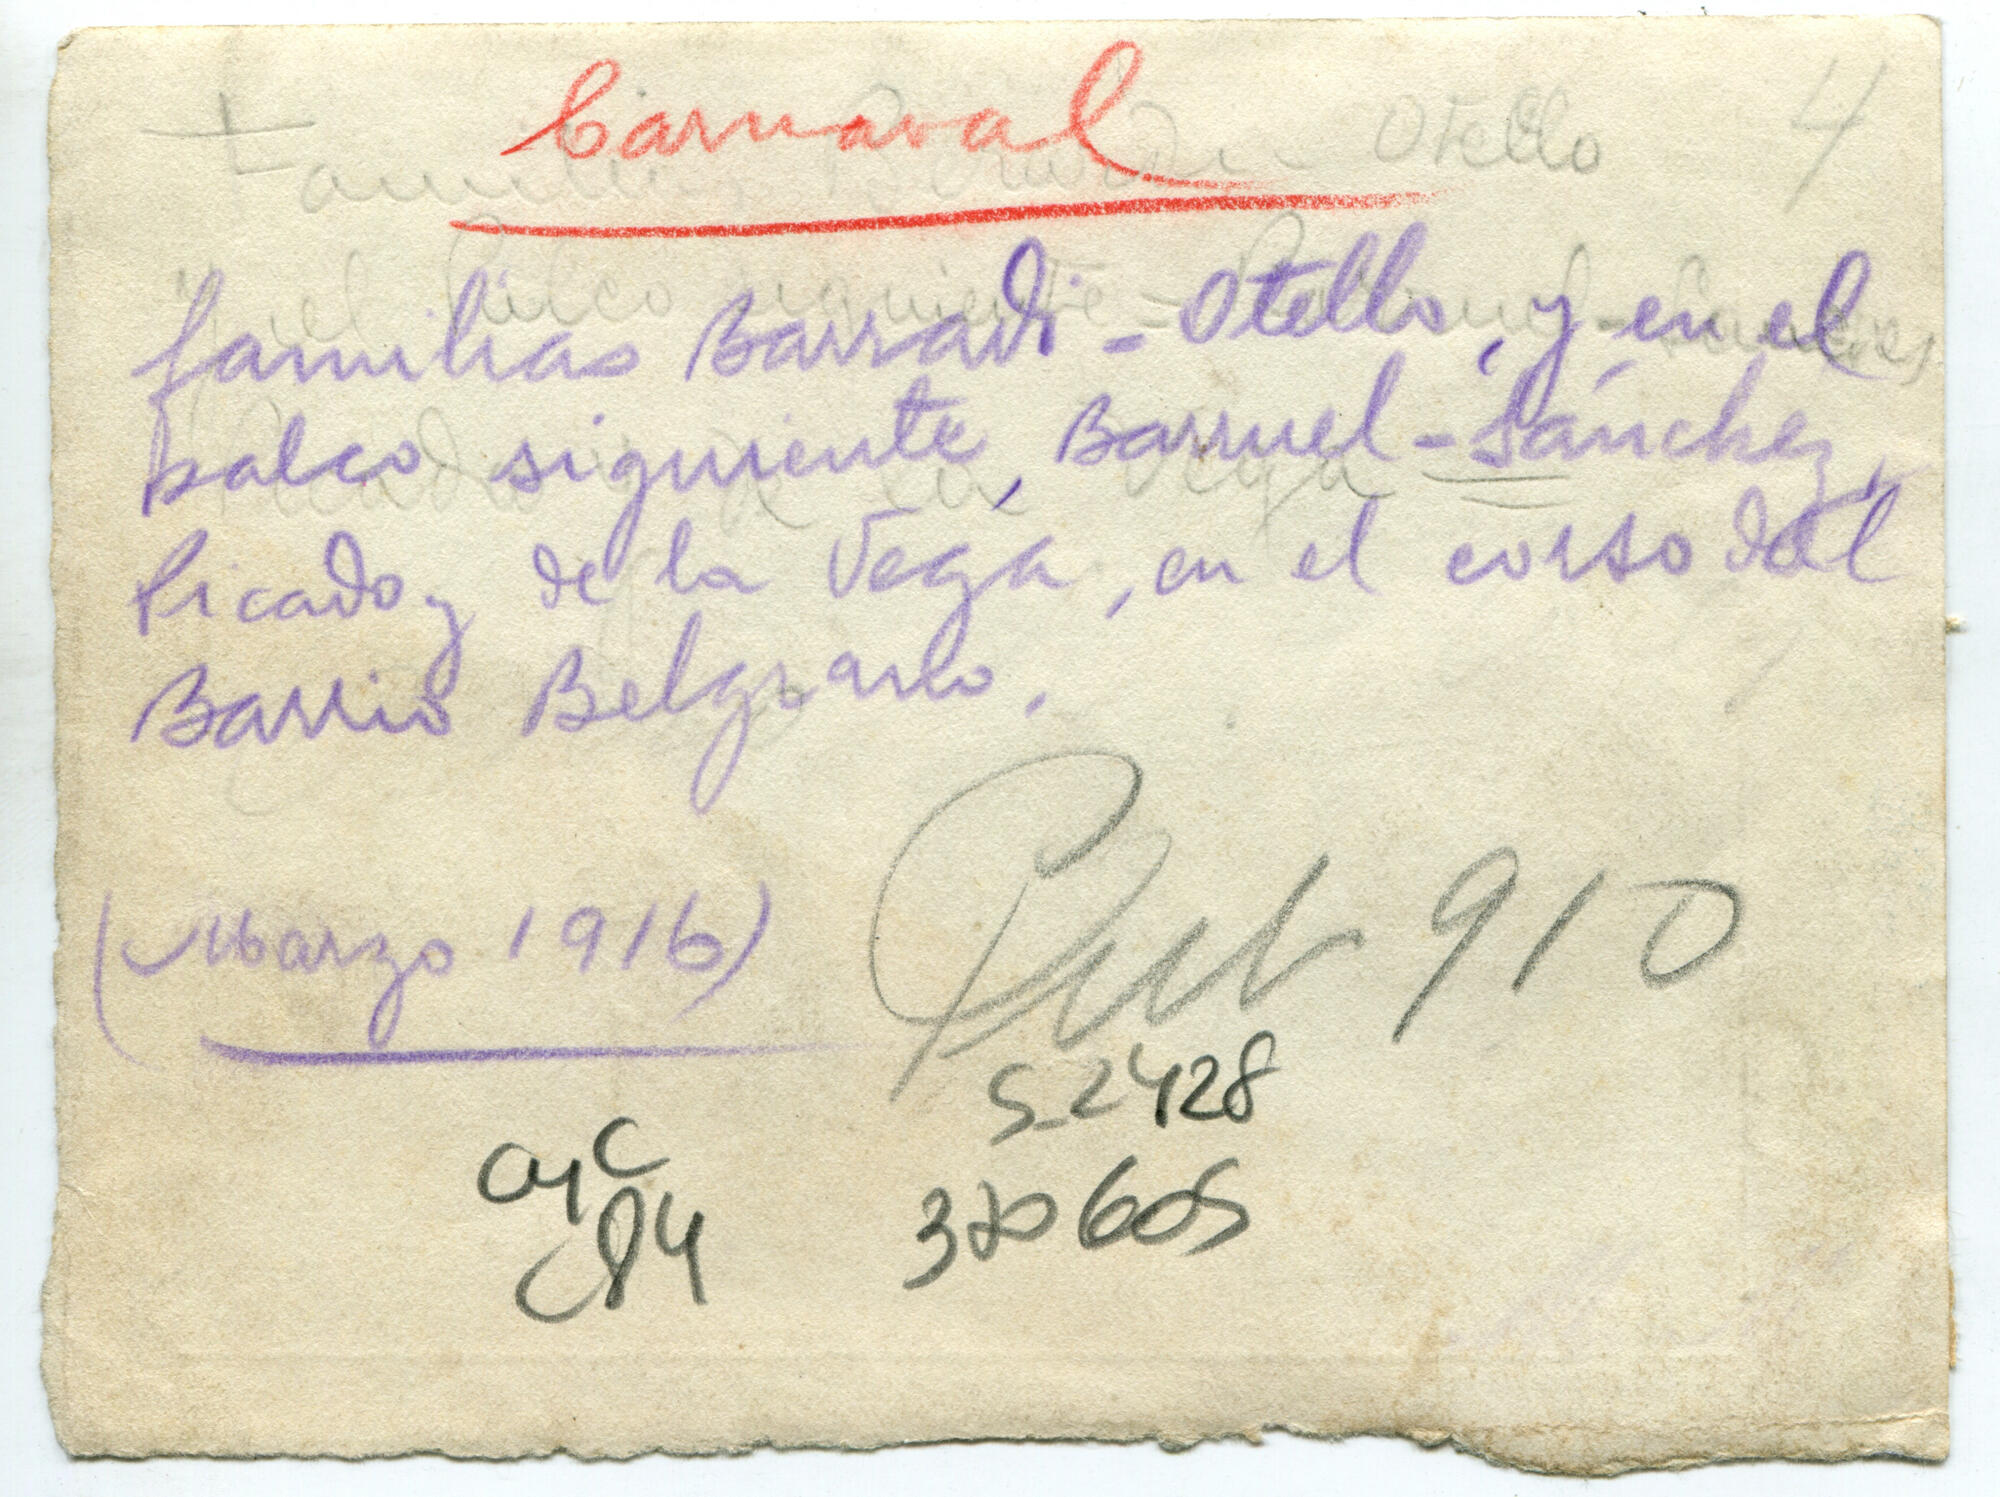 Carnaval
Otello
4
familias Barradi - Otello, y en el
palco siguiente, Barruel - Sánchez,
Picado y de la Vega, en el corso del
Barrio Belgrano.
(Marzo 1916)
Pub 910
S-2428
CyC
84
370605